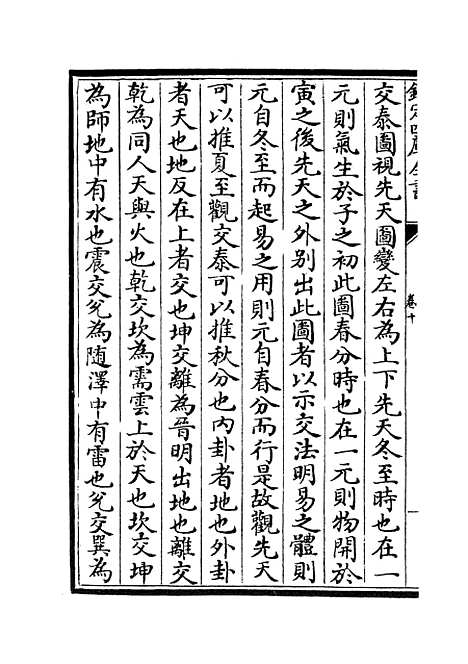 欽定四庫全書
卷十
交泰圖視先天圖變左右為上下先天冬至時也在一
元則氣生於子之初此圖春分時也在一元則物開於
寅之後先天之外别出此圖者以示交法明易之體則
元自冬至而起易之用則元自春分而行是故觀先天
可以推夏至觀交泰可以推秋分也内卦者地也外卦
者天也地反在上者交也坤交離為晉明出地也離交
乾為同人天與火也乾交坎為需雲上於天也坎交坤
為師地中有水也震交兊為随澤中有雷也兊交巽為